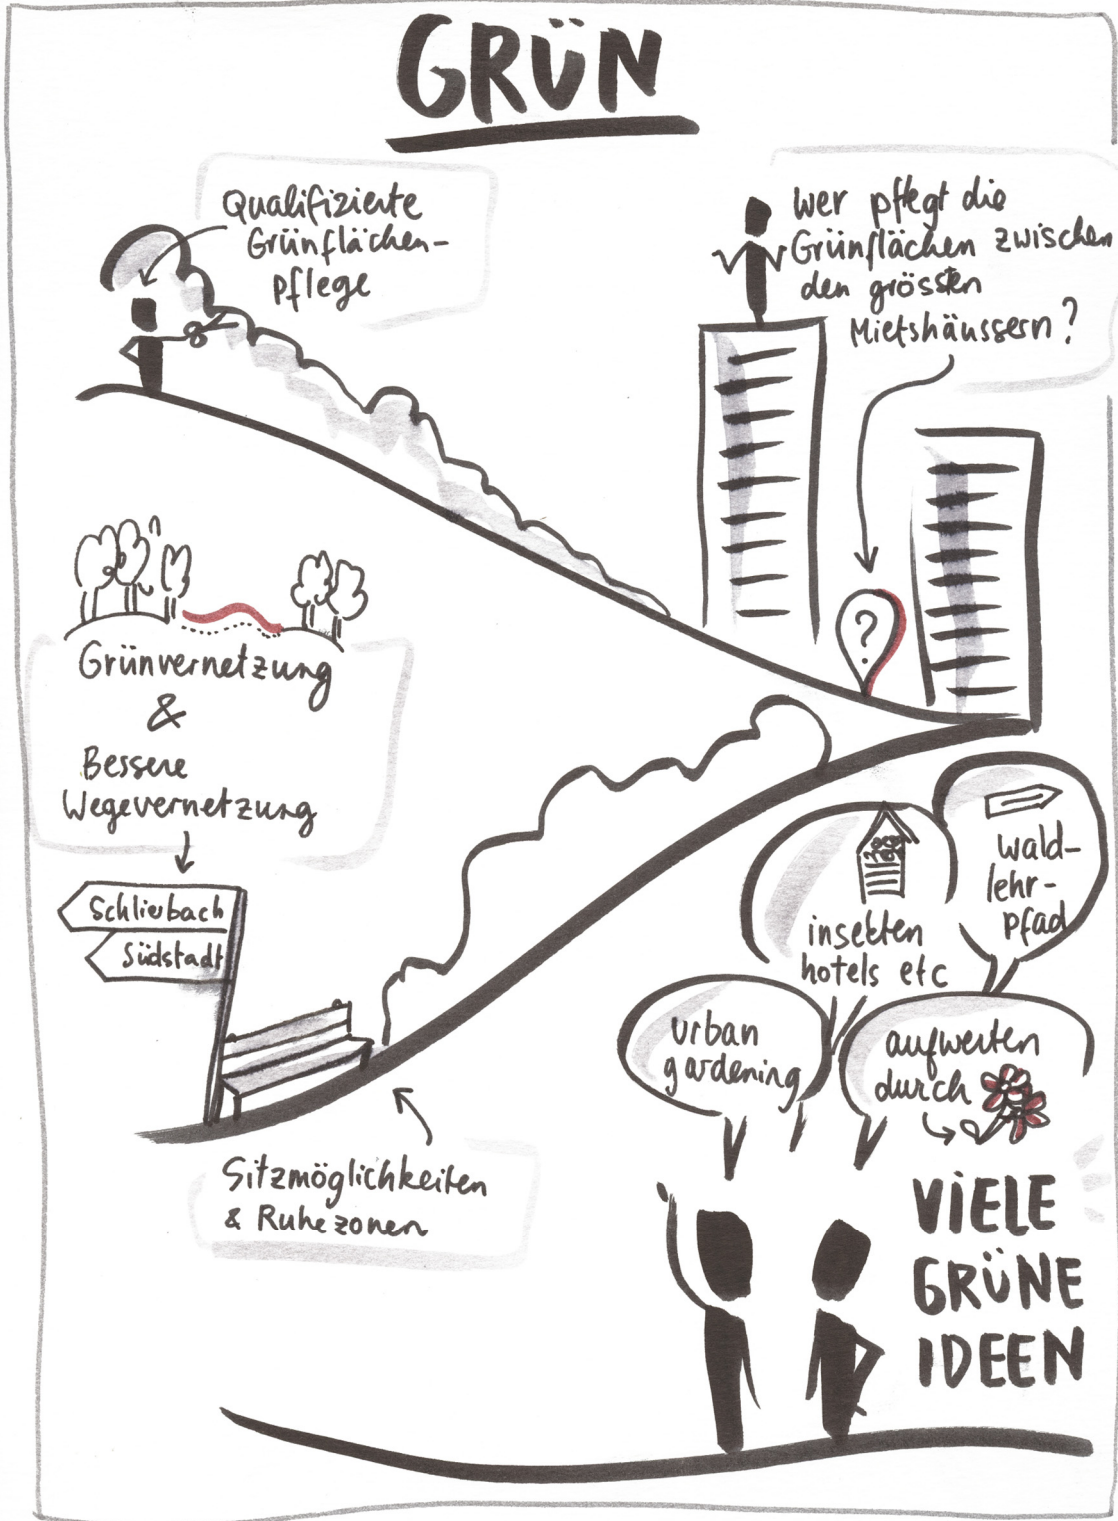 GRÜN
Qualifizierte
Grünflächen-
pflege
Wer pflegt die
Grünflächen zwischen
den grössten
Mietshäussern?
?
Grünvernetzung
&
Bessere
Wegevernetzung
Schlierbach
Südstadt
Sitzmöglichkeiten
& Ruhezonen
wald-
lehr-
pfad
insekten
hotels etc
urban
gardening
aufwerten
durch
VIELE
GRÜNE
IDEEN